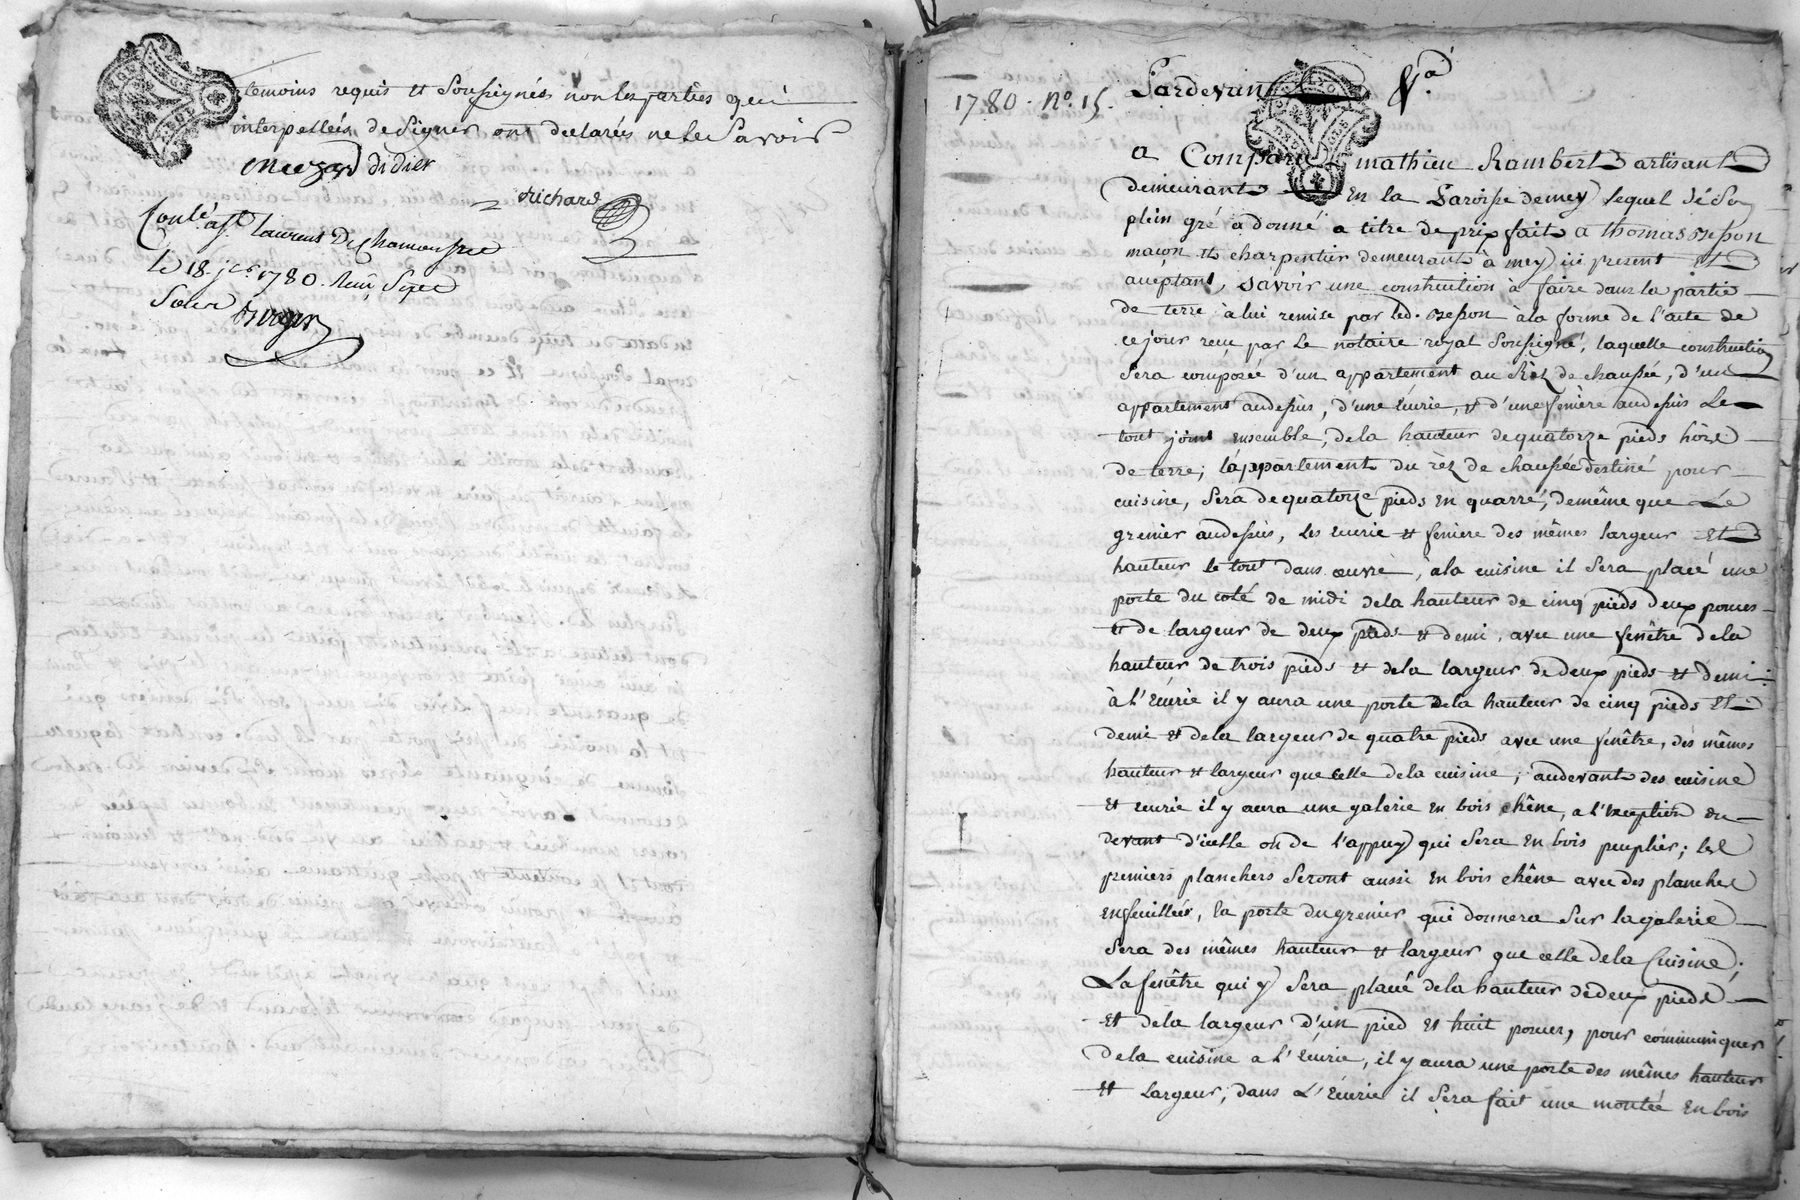 temoins requis et Soussignés non les parties que
interpellées de Signer ont declarées ne le Savoir
didier
Richard
Conlé a St Laurens De Chamousset
Le 18 jer 1780. Reçu
1780. No. 15.
Pardevant
a Comparu mathieu Rambert artisant
demeurant En la Paroisse de mey lequel de Son
plein gré a donné a titre de prix fait a thomas ossson
maçon et charpentier demeurant à mey ici present Et
aceptant, Savoir une construction à faire dans la partie
de terre à lui remise par led. à la forme de l'acte de
ce jour reçu par Le notaire royal Soussigné, laquelle construction
Sera composée d'un appartement au Rèz de chaussée, d'un
appartement audessus, d'une Ecurie, et d'une fenière audessus Le
tout joint ensemble, de la hauteur de quatorze pieds hors
de terre; l'appartement du rèz de chaussée destiné pour
cuisine, Sera de quatorze pieds En quarré, de même que Le
grenier audessus, Les Ecurie et feniere des mêmes largeur Et
hauteur Le tout dans œuvre, à la cuisine il Sera placé une
porte du coté de midi de la hauteur de cinq pieds deux pouces
et de largeur de deux pieds et demi, avec une fenêtre de la
hauteur de trois pieds et de la largeur de deux pieds et demi:
à l'Ecurie il y aura une porte de la hauteur de cinq pieds Et
demi et de la largeur de quatre pieds avec une fenêtre, des mêmes
hauteur et largeur que celle de la cuisine; audevant des cuisine
Et Ecurie il y aura une galerie En bois chêne, a l'Exception du
devant d'icelle ou de l'appuy qui Sera En bois peuplier; les
premiers planchers Seront aussi En bois chêne avec des planches
Enfeuillées, la porte du grenier qui donnera Sur la galerie
Sera des mêmes hauteur et largeur que celle de la Cuisine;
La fenêtre qui y Sera placé de la hauteur de deux pieds
Et de la largeur d'un pied Et huit pouces, pour communiquer
de la cuisine a l'Ecurie, il y aura une porte des mêmes hauteur
Et Largeur; dans L'Ecurie il Sera fait une montée En bois